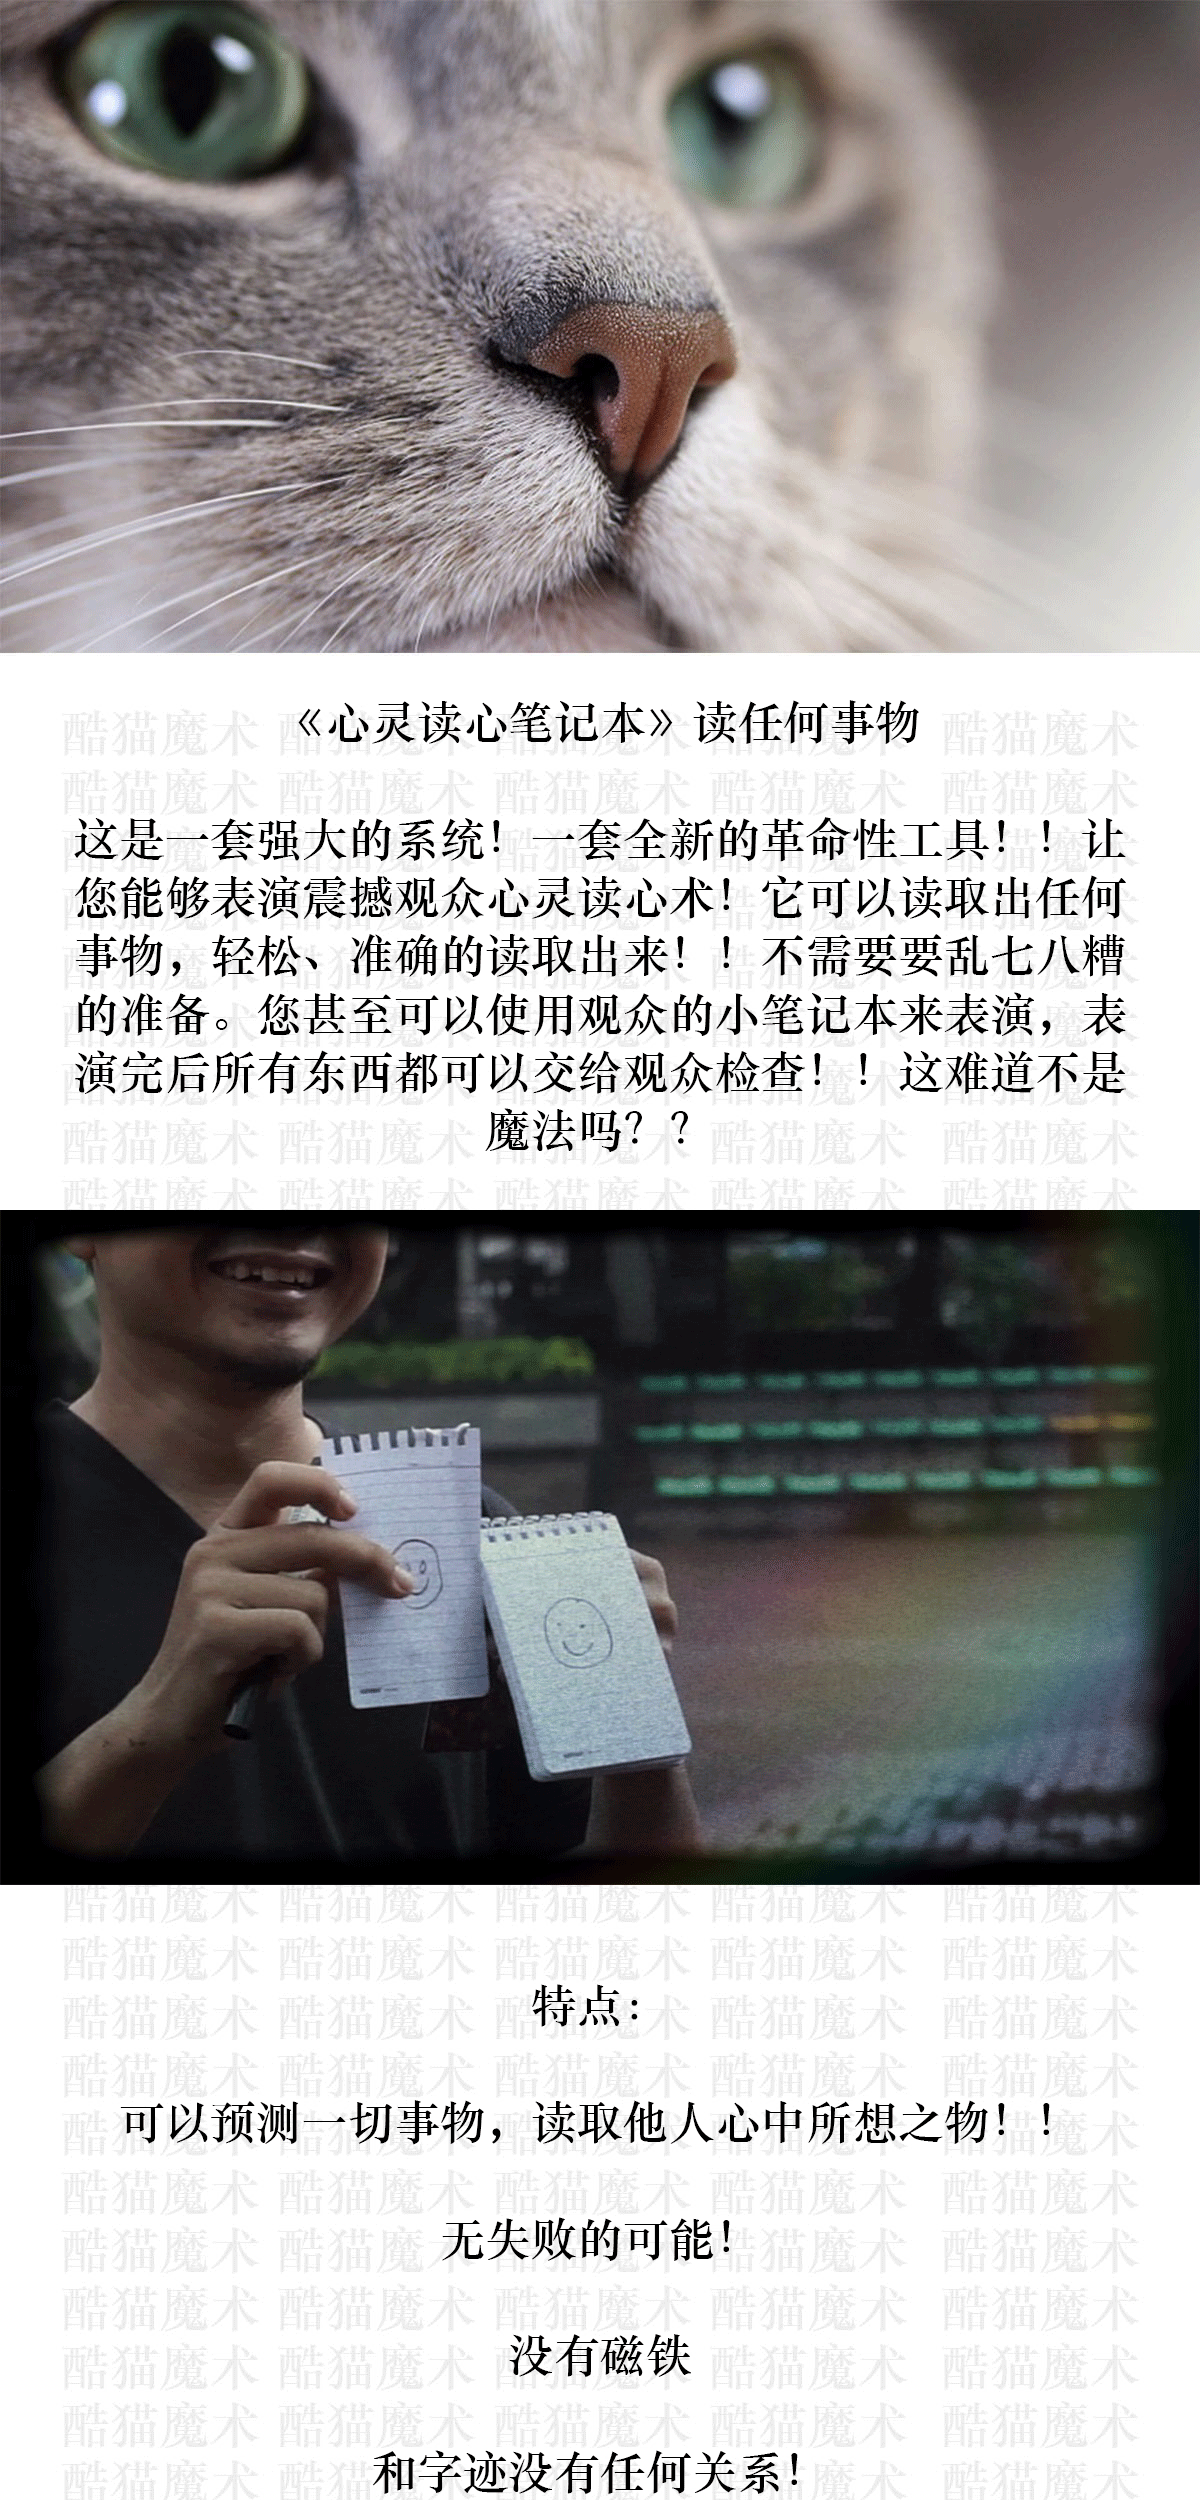 《心灵读心笔记本》读任何事物
这是一套强大的系统！一套全新的革命性工具！！让
您能够表演震撼观众心灵读心术！它可以读取出任何
事物，轻松、准确的读取出来！！不需要要乱七八糟
的准备。您甚至可以使用观众的小笔记本来表演，表
演完后所有东西都可以交给观众检查！！这难道不是
魔法吗？？
特点：
可以预测一切事物，读取他人心中所想之物！！
无失败的可能！
没有磁铁
和字迹没有任何关系！
酷猫魔术 酷猫魔术 酷猫魔术 酷猫魔术 酷猫魔术